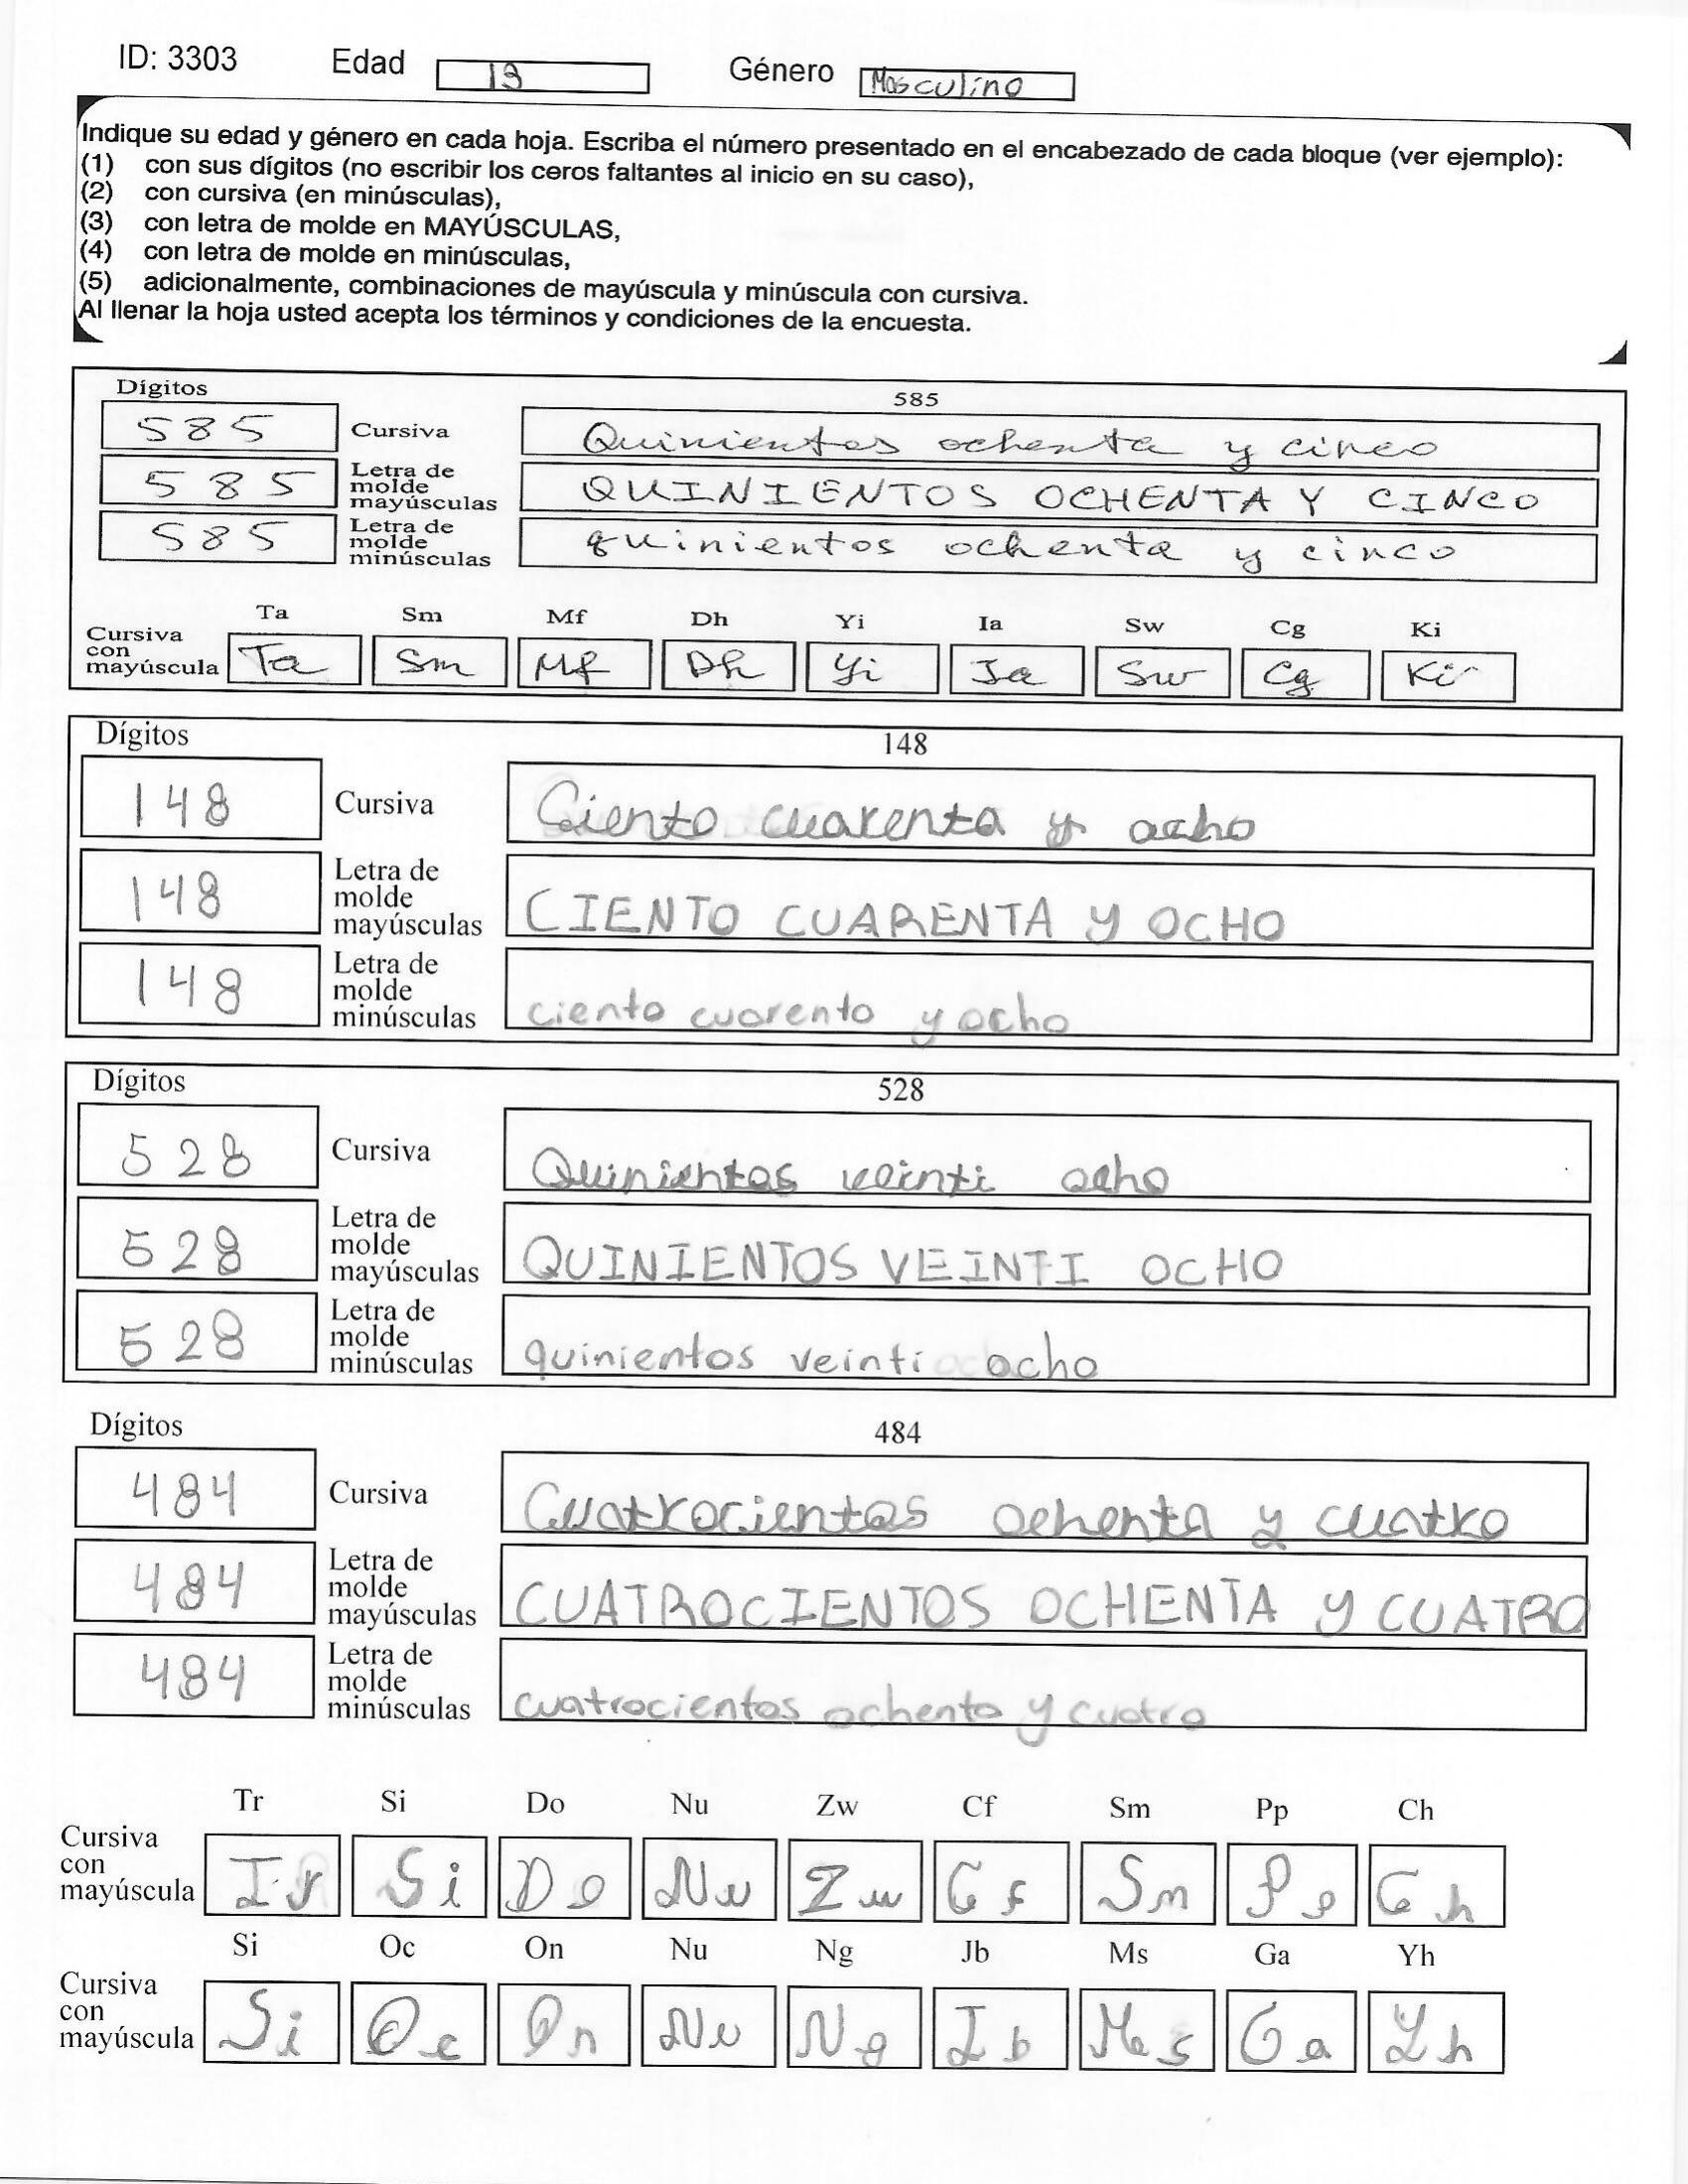 ID: 3303 Edad 13 Género Masculino
Indique su edad y género en cada hoja. Escriba el número presentado en el encabezado de cada bloque (ver ejemplo):
(1) con sus dígitos (no escribir los ceros faltantes al inicio en su caso),
(2) con cursiva (en minúsculas),
(3) con letra de molde en MAYÚSCULAS,
(4) con letra de molde en minúsculas,
(5) adicionalmente, combinaciones de mayúscula y minúscula con cursiva.
Al llenar la hoja usted acepta los términos y condiciones de la encuesta.
Dígitos 585
585 Cursiva Quinientos ochenta y cinco
585 Letra de molde mayúsculas QUINIENTOS OCHENTA Y CINCO
585 Letra de molde minúsculas quinientos ochenta y cinco
Ta Sm Mf Dh Yi Ia Sw Cg Ki
Cursiva con mayúscula Ta Sm Mf Dh Yi Ia Sw Cg Ki
Dígitos 148
148 Cursiva Ciento cuarenta y ocho
148 Letra de molde mayúsculas CIENTO CUARENTA Y OCHO
148 Letra de molde minúsculas ciento cuarento y ocho
Dígitos 528
528 Cursiva Quinientos veinti ocho
528 Letra de molde mayúsculas QUINIENTOS VEINTI OCHO
528 Letra de molde minúsculas quinientos veinti ocho
Dígitos 484
484 Cursiva Cuatrocientos ochenta y cuatro
484 Letra de molde mayúsculas CUATROCIENTOS OCHENTA Y CUATRO
484 Letra de molde minúsculas cuatrocientos ochenta y cuatro
Tr Si Do Nu Zw Cf Sm Pp Ch
Cursiva con mayúscula Tr Si Do Nu Zw Cf Sm Pp Ch
Si Oc On Nu Ng Jb Ms Ga Yh
Cursiva con mayúscula Si Oc On Nu Ng Jb Ms Ga Yh